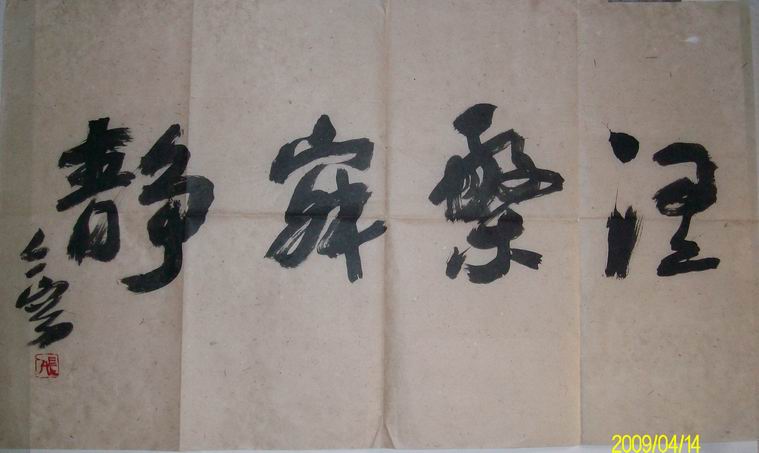 涅槃寂静
2009/04/14